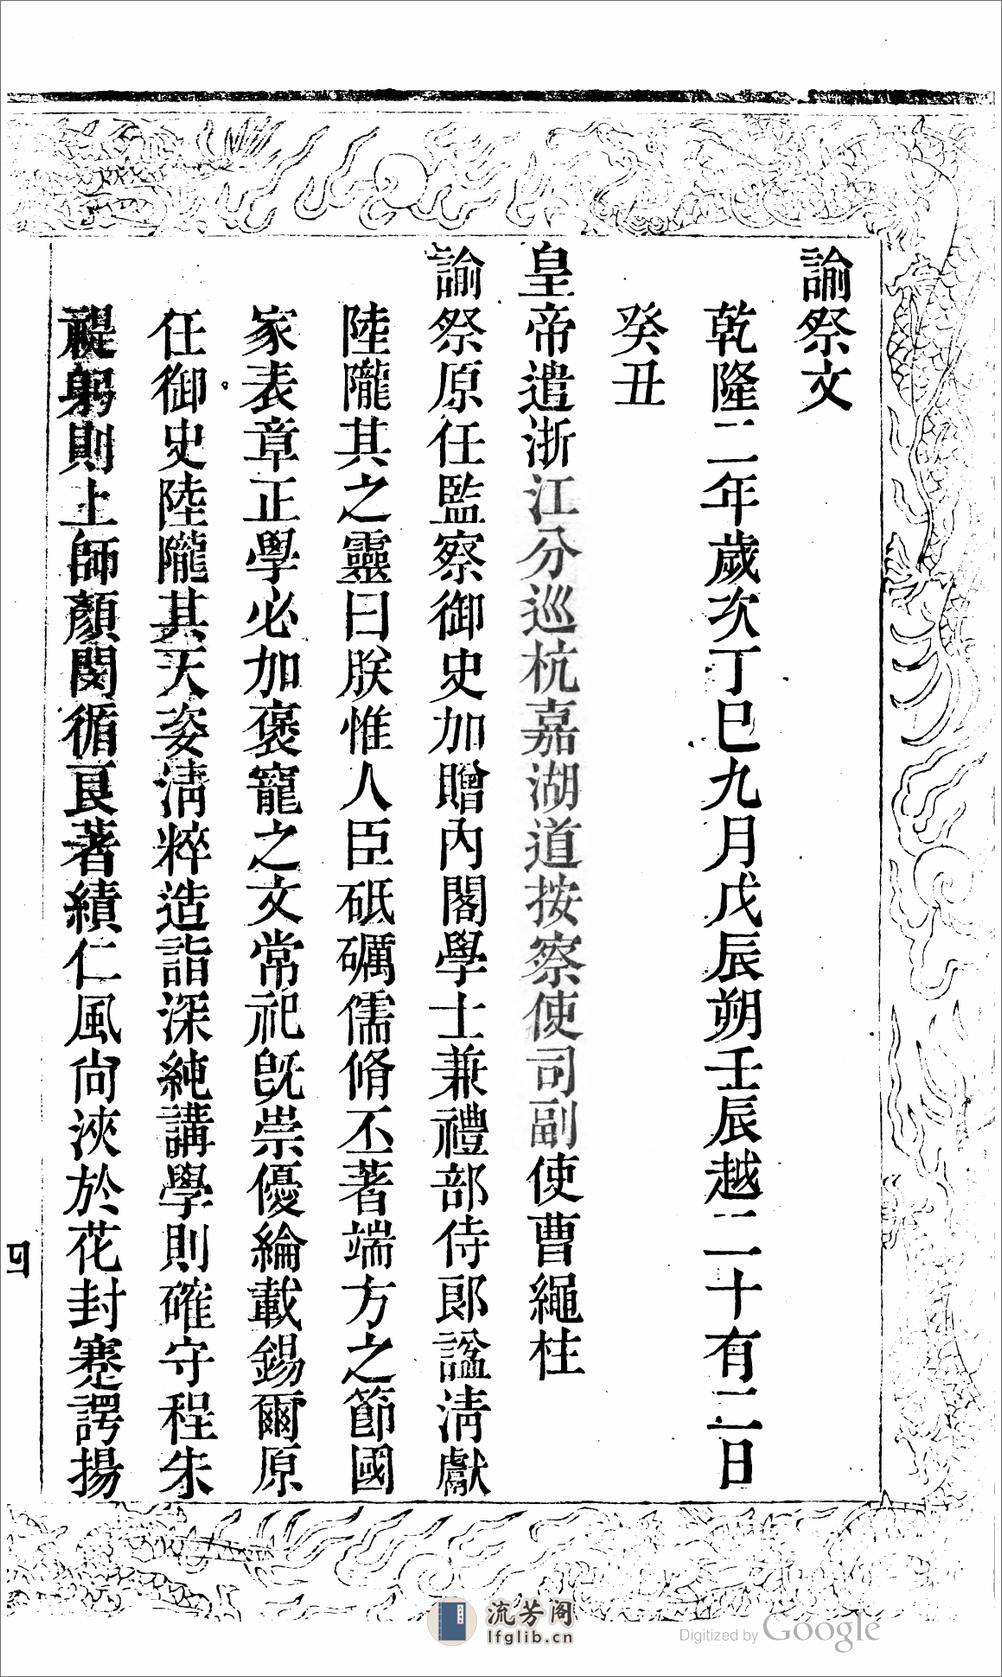 諭祭文
乾隆二年歲次丁巳九月戊辰朔壬辰越二十有二日
癸丑
皇帝遣浙江分巡杭嘉湖道按察使司副使曹繩柱
諭祭原任監察御史加贈內閣學士兼禮部侍郞諡淸獻
陸隴其之靈曰朕惟人臣砥礪儒脩丕著端方之節國
家表章正學必加褒寵之文常祀旣崇優綸載錫爾原
任御史陸隴其天姿淸粹造詣深純講學則確守程朱
禔躬則上師顏閔循良著績仁風尙浹於花封蹇諤揚
四
流芳阁
lfglib.cn
Digitized by Google